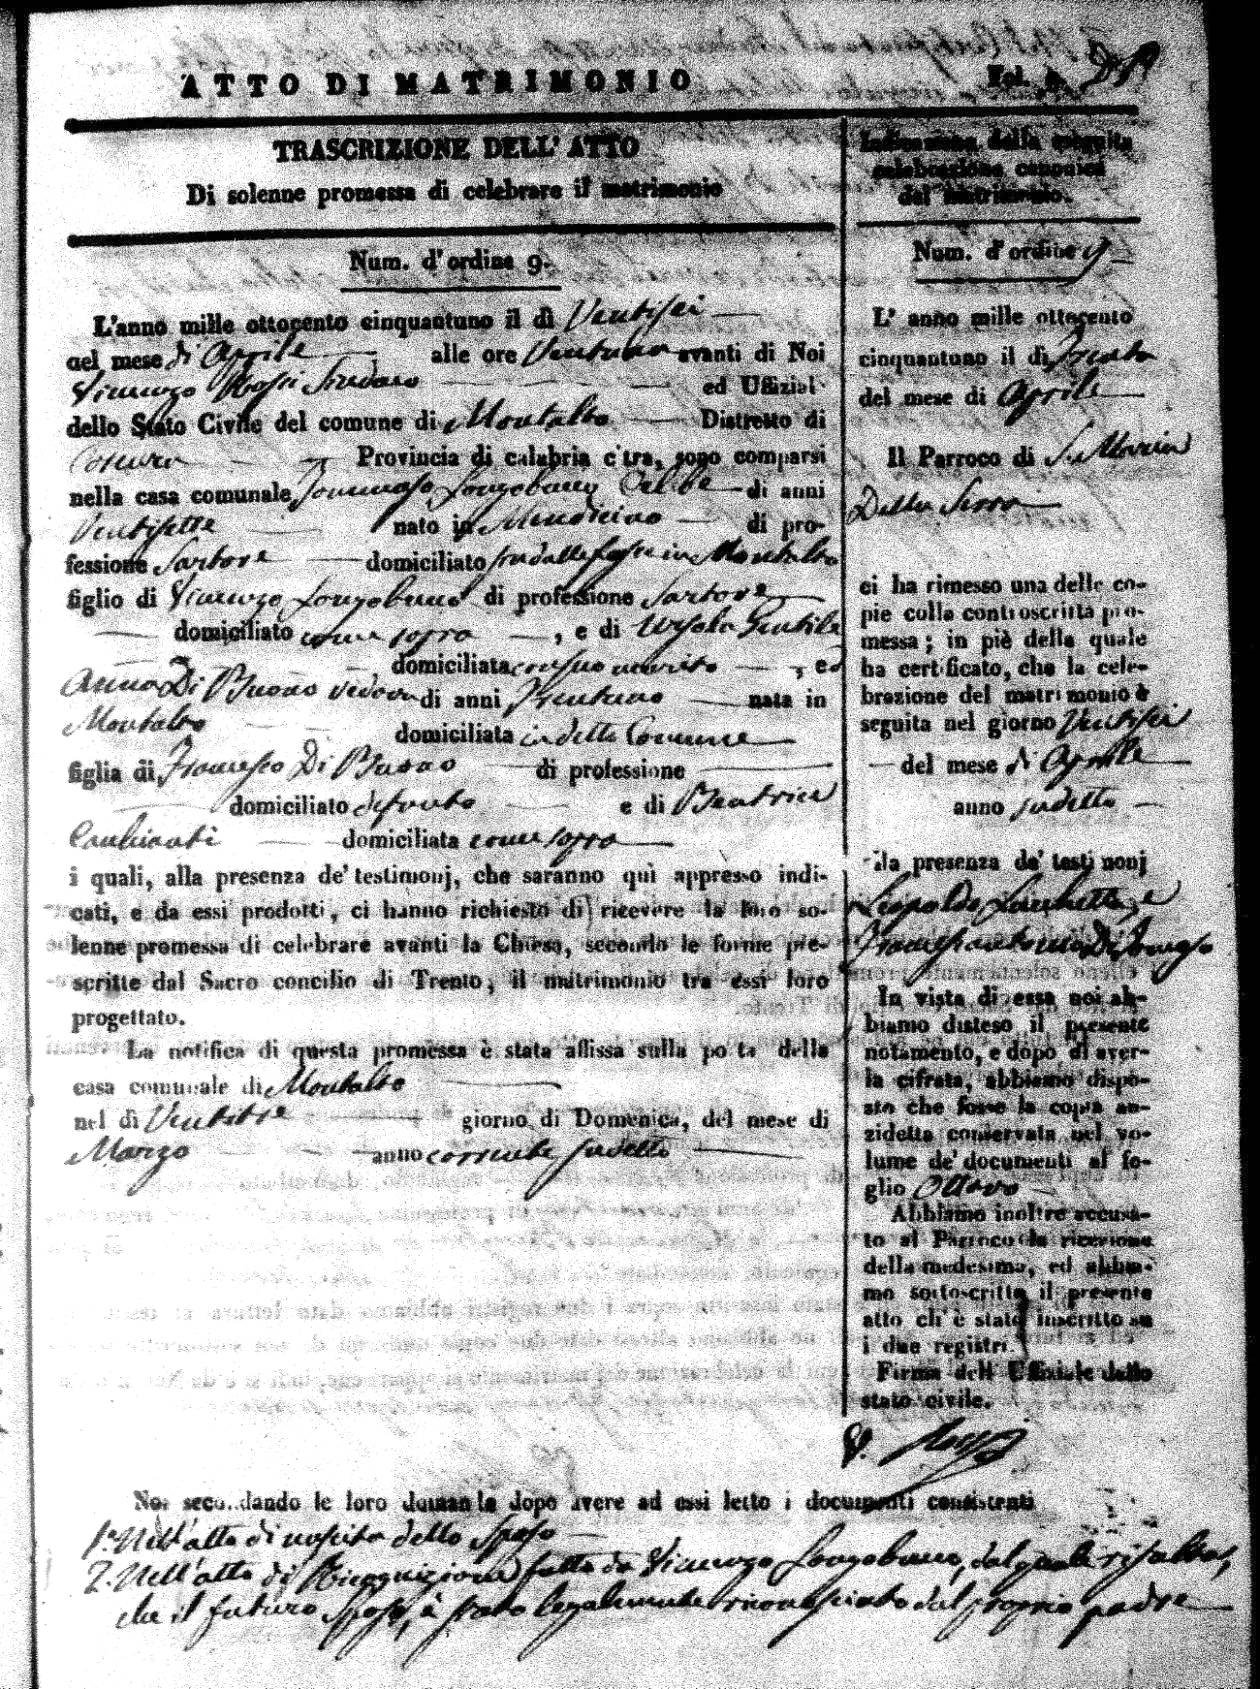 ATTO DI MATRIMONIO
Fol.
TRASCRIZIONE DELL' ATTO
Di solenne promessa di celebrare il matrimonio
Num. d' ordine 9.
L'anno mille ottocento cinquantuno il dì Ventisei
nel mese di Aprile alle ore Ventuno avanti di Noi
Vincenzo Rossi Sindaco ed Uffizial
dello Stato Civile del comune di Montalto Distretto di
Cosenza Provincia di calabria citra, sono comparsi
nella casa comunale Tommaso Longobuco Celibe di anni
Ventisette nato in Mendicino di pro-
fessione Sartore domiciliato in Montalto
figlio di Vincenzo Longobuco di professione Sartore
domiciliato come sopra , e di Ursola Gentile
domiciliata con suo marito , ed
Anna Di Buono vedova di anni Trentuno nata in
Montalto domiciliata in detto Comune
figlia di Francesco Di Buono di professione
domiciliato defunto e di Beatrice
domiciliata come sopra
i quali, alla presenza de' testimonj, che saranno quì appresso indi-
cati, e da essi prodotti, ci hanno richiesto di ricevere la loro so-
lenne promessa di celebrare avanti la Chiesa, secondo le forme pre-
scritte dal Sacro concilio di Trento, il matrimonio tra essi loro
progettato.
La notifica di questa promessa è stata affissa sulla porta della
casa comunale di Montalto
nel dì Ventitre giorno di Domenica, del mese di
Marzo anno corrente sudetto
Indicazione della seguita
celebrazione canonica
del matrimonio.
Num. d' ordine 9
L' anno mille ottocento
cinquantuno il dì Trenta
del mese di Aprile
Il Parroco di S. Maria
Della Serra
ci ha rimesso una delle co-
pie colla controscritta pro-
messa; in piè della quale
ha certificato, che la cele-
brazione del matrimonio è
seguita nel giorno Ventisei
del mese di Aprile
anno sudetto
alla presenza de' testimonj
Leopoldo e
Francescantonio Di
In vista di essa noi ab-
biamo disteso il presente
notamento, e dopo di aver-
la cifrata, abbiamo dispo-
sto che fosse la copia an-
zidetta conservata nel vo-
lume de' documenti al fo-
glio Ottavo
Abbiamo inoltre accusa-
to al Parroco la ricezione
della medesima, ed abbia-
mo sottoscritto il presente
atto ch' è stato inscritto su
i due registri.
Firma dell' Uffiziale dello
stato civile.
V. Rossi
Noi secondando le loro domande dopo avere ad essi letto i documenti consistenti
1.° Nell'atto di nascita dello Sposo
2. Nell'atto di Ricognizione fatto da Vincenzo Longobuco, dal quale risulta,
che il futuro Sposo, è stato legalmente riconosciuto dal proprio padre